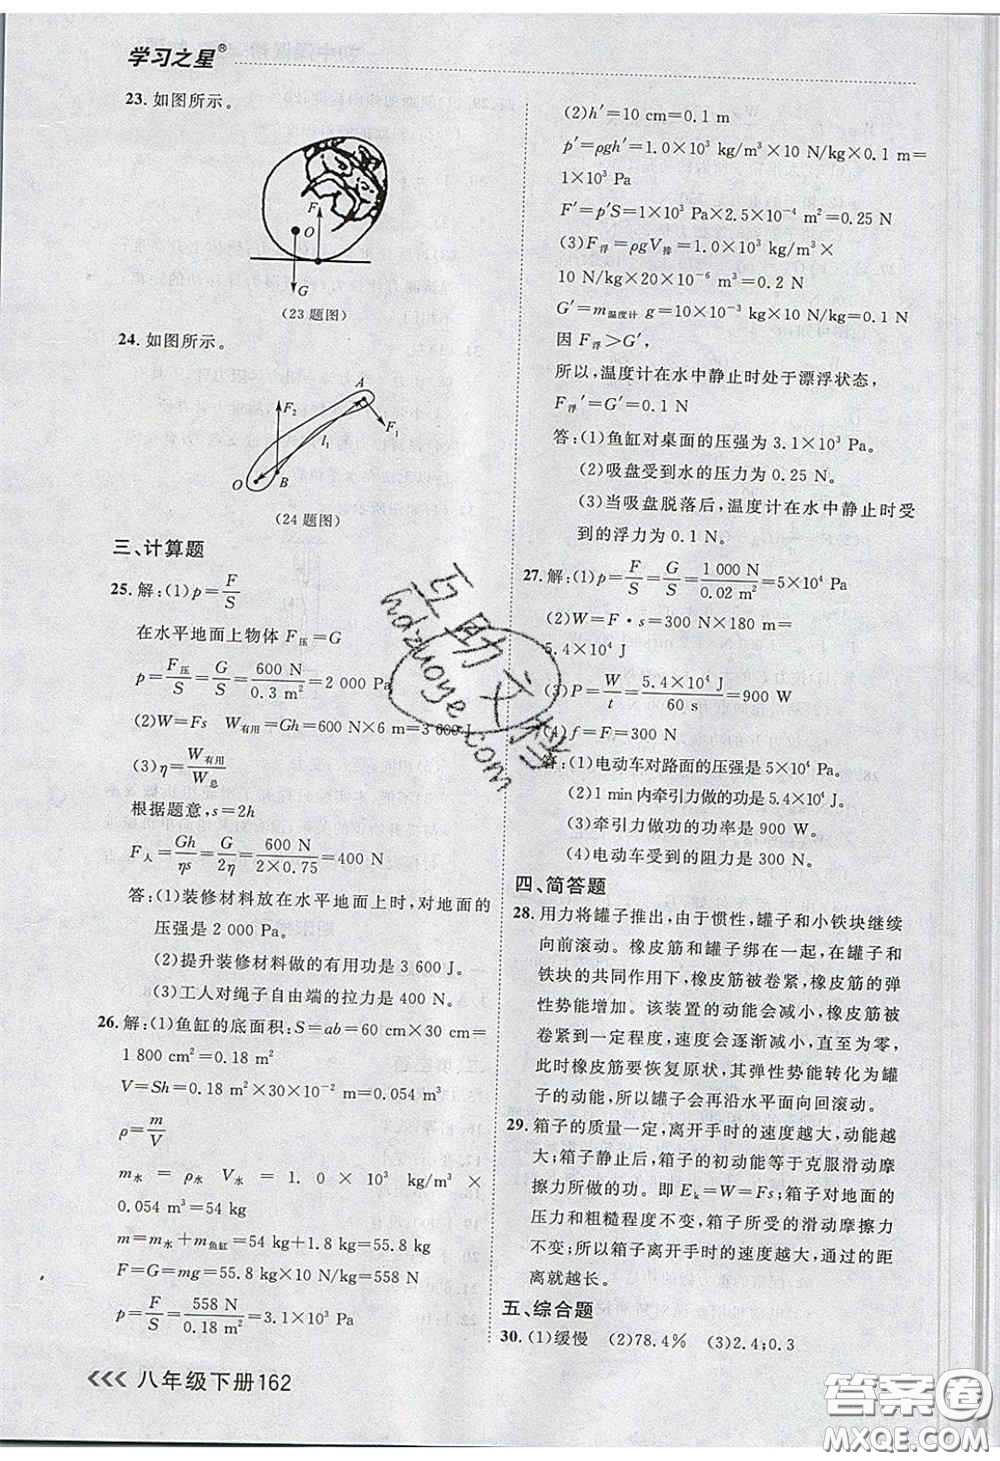 学习之星®
23. 如图所示。
F
O
G
(23题图)
24. 如图所示。
A
F₂
F₁
l₁
O
B
(24题图)
三、计算题
25. 解:(1)p=F/S
在水平地面上物体 F压=G
p=F压/S=G/S=600 N/0.3 m²=2 000 Pa
(2)W=Fs W有用=Gh=600 N×6 m=3 600 J
(3)η=W有用/W总
根据题意,s=2h
F人=Gh/ηs=G/2η=600 N/2×0.75=400 N
答:(1)装修材料放在水平地面上时,对地面的
压强是 2 000 Pa。
(2)提升装修材料做的有用功是 3 600 J。
(3)工人对绳子自由端的拉力是 400 N。
26. 解:(1)鱼缸的底面积:S=ab=60 cm×30 cm=
1 800 cm²=0.18 m²
V=Sh=0.18 m²×30×10⁻² m=0.054 m³
ρ=m/V
m水 = ρ水 V水 = 1.0 × 10³ kg/m³ ×
0.054 m³=54 kg
m=m水+m鱼缸=54 kg+1.8 kg=55.8 kg
F=G=mg=55.8 kg×10 N/kg=558 N
p=F/S=558 N/0.18 m²=3.1×10³ Pa
八年级下册162
(2)h′=10 cm=0.1 m
p′=ρgh′=1.0×10³ kg/m³×10 N/kg×0.1 m=
1×10³ Pa
F′=p′S=1×10³ Pa×2.5×10⁻⁴ m²=0.25 N
(3)F浮=ρgV排=1.0×10³ kg/m³×
10 N/kg×20×10⁻⁶ m³=0.2 N
G′=m温度计 g=10×10⁻³ kg×10 N/kg=0.1 N
因 F浮>G′,
所以,温度计在水中静止时处于漂浮状态,
F浮′=G′=0.1 N
答:(1)鱼缸对桌面的压强为 3.1×10³ Pa。
(2)吸盘受到水的压力为 0.25 N。
(3)当吸盘脱落后,温度计在水中静止时受
到的浮力为 0.1 N。
27. 解:(1)p=F/S=G/S=1 000 N/0.02 m²=5×10⁴ Pa
(2)W=F·s=300 N×180 m=
5.4×10⁴ J
(3)P=W/t=5.4×10⁴ J/60 s=900 W
(4)f=F=300 N
答:(1)电动车对路面的压强是 5×10⁴ Pa。
(2)1 min内牵引力做的功是 5.4×10⁴ J。
(3)牵引力做功的功率是 900 W。
(4)电动车受到的阻力是 300 N。
四、简答题
28. 用力将罐子推出,由于惯性,罐子和小铁块继续
向前滚动。橡皮筋和罐子绑在一起,在罐子和
铁块的共同作用下,橡皮筋被卷紧,橡皮筋的弹
性势能增加。该装置的动能会减小,橡皮筋被
卷紧到一定程度,速度会逐渐减小,直至为零,
此时橡皮筋要恢复原状,其弹性势能转化为罐
子的动能,所以罐子会再沿水平面向回滚动。
29. 箱子的质量一定,离开手时的速度越大,动能越
大;箱子静止后,箱子的初动能等于克服滑动摩
擦力所做的功。即 Eₖ=W=Fs;箱子对地面的
压力和粗糙程度不变,箱子所受的滑动摩擦力
不变;所以箱子离开手时的速度越大,通过的距
离就越长。
五、综合题
30. (1)缓慢 (2)78.4% (3)2.4;0.3
互助文档
hdzuoye.com
答案卷
MXQE.COM